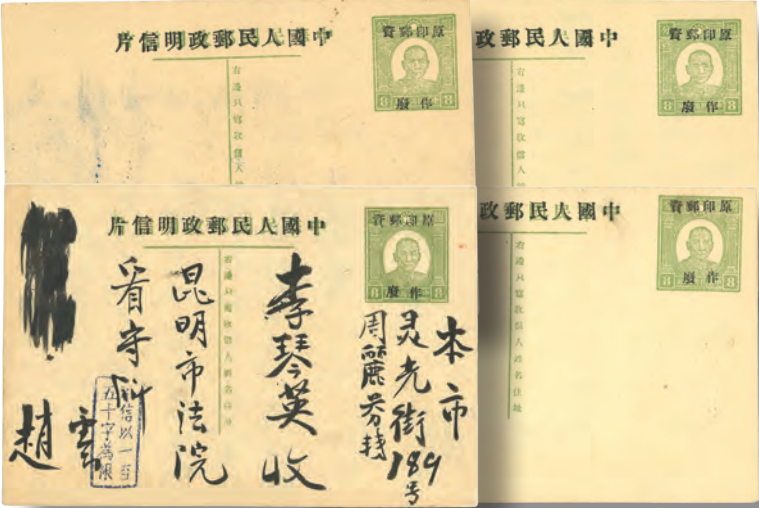 中國人民郵政明信片
原印郵資
作廢
8 8
右邊只寫收信人
中國人民郵政
原印郵資
作廢
8 8
右邊只寫收信人
中國人民郵政明信片
原印郵資
作廢
8 8
本市
灵光街189号
周麗芬转
李琴英收
右邊只寫收信人姓名住址
昆明市法院
看守所
信以一百
五十字為限
趙雲
中國人民郵政
原印郵資
作廢
8 8
右邊只寫收信人姓名住址